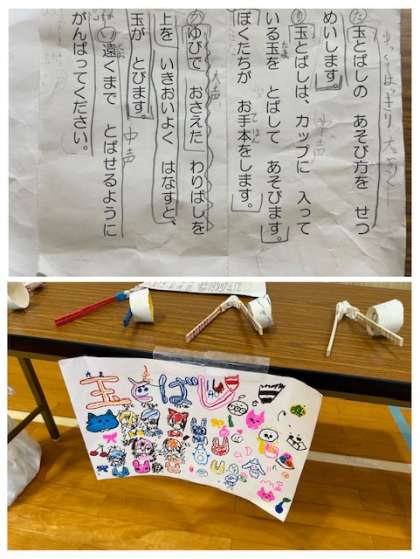 玉とばしの あそび方を せつ
めいします。
中声
玉とばしは、カップに 入って
いる玉を とばして あそびます。
ぼくたちが お手本をします。
大声
ゆびで おさえた わりばしを
上を いきおいよく はなすと、
玉が とびます。
中声
遠くまで とばせるように
がんばってください。
玉とばし